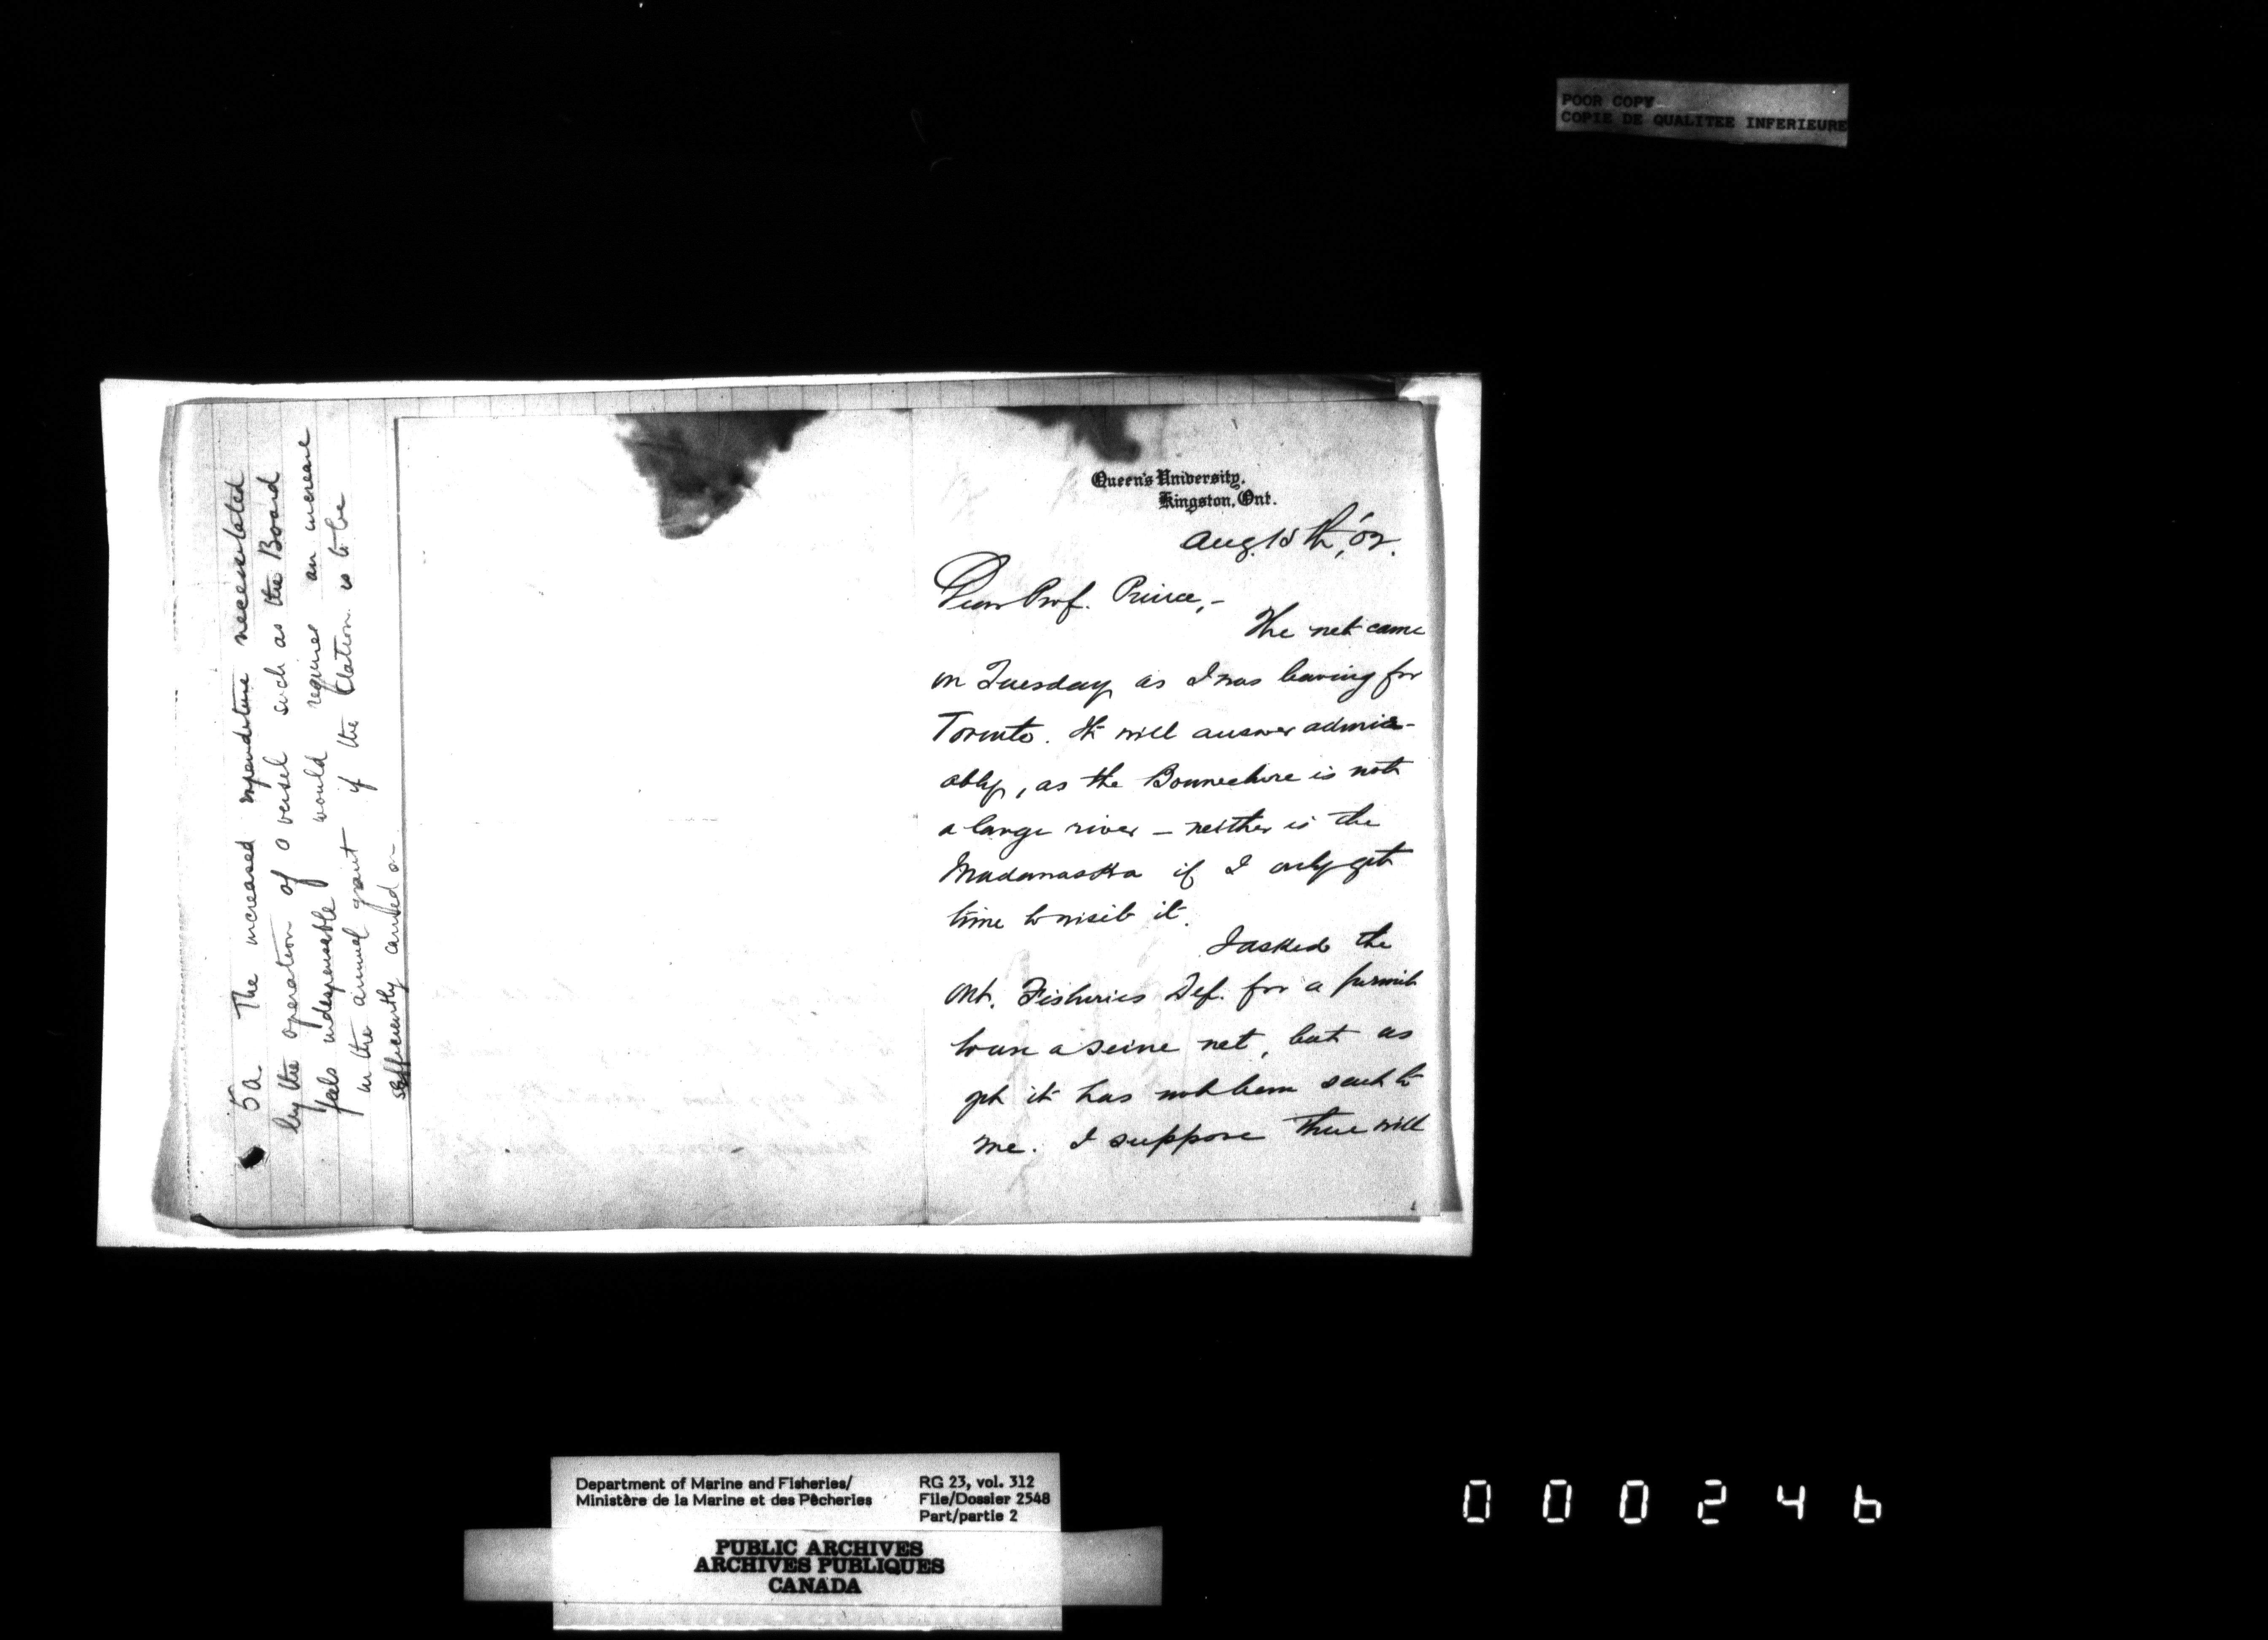 POOR COPY
COPIE DE QUALITEE INFERIEURE
5a The increased expenditure necessitated
by the operation of a vessel such as the Board
feels indespensable would requires an increase
in the annual grant if the Station is to be
efficiently carried on
Queen's University,
Kingston, Ont.
Aug. 15th, '02.
Dear Prof. Prince,-
The net came
on Tuesday as I was leaving for
Toronto. It will answer admir-
ably, as the Bonnechere is not
a large river – neither is the
Madawaska if I only get
time to visit it.
I asked the
Ont. Fisheries Dep. for a permit
to use a seine net, but as
yet it has not been sent to
me. I suppose there will
Department of Marine and Fisheries/
Ministère de la Marine et des Pêcheries
RG 23, vol. 312
File/Dossier 2548
Part/partie 2
PUBLIC ARCHIVES
ARCHIVES PUBLIQUES
CANADA
000246